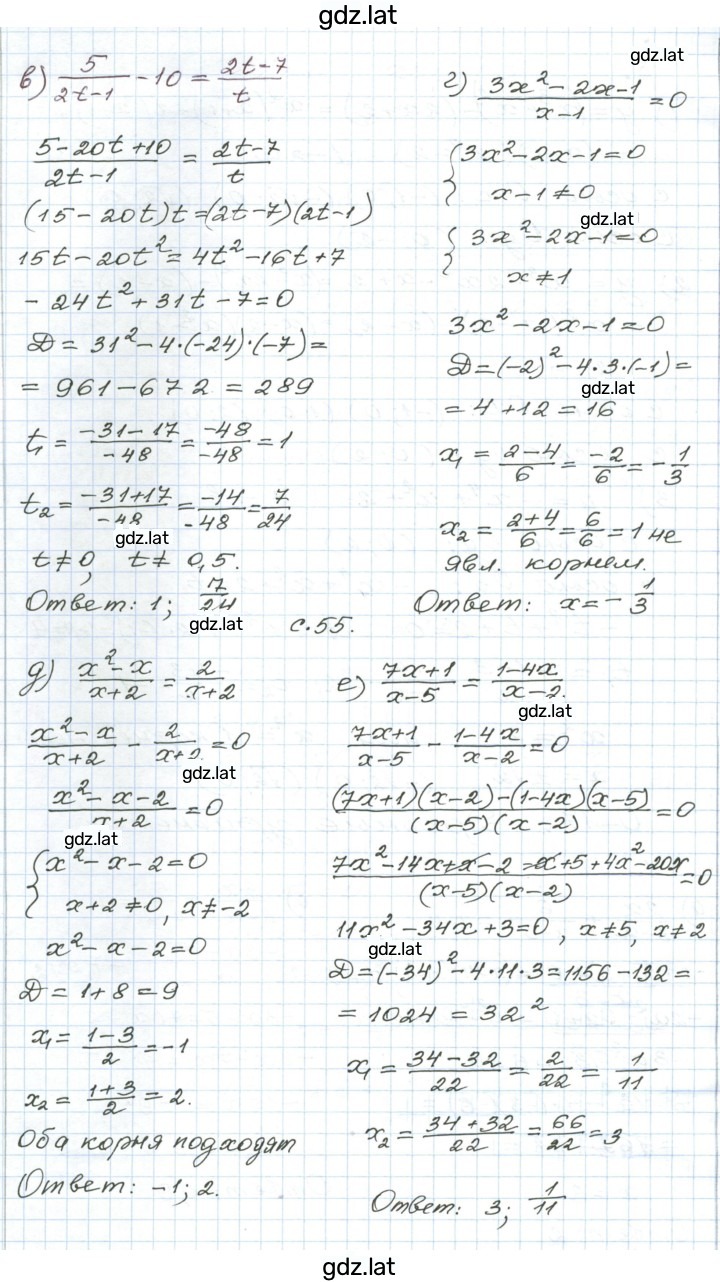 gdz.lat
в) 5/(2t-1) - 10 = (2t-7)/t
(5-20t+10)/(2t-1) = (2t-7)/t
(15-20t)t=(2t-7)(2t-1)
15t-20t²=4t²-16t+7
-24t²+31t-7=0
D=31²-4·(-24)·(-7)=
=961-672=289
t₁=(-31-17)/-48=-48/-48=1
t₂=(-31+17)/-48=-14/-48=7/24
gdz.lat
t≠0, t≠0,5.
Ответ: 1; 7/24
gdz.lat
gdz.lat
г) (3x²-2x-1)/(x-1)=0
{3x²-2x-1=0
x-1≠0
gdz.lat
{3x²-2x-1=0
x≠1
3x²-2x-1=0
D=(-2)²-4·3·(-1)=
gdz.lat
=4+12=16
x₁=(2-4)/6=-2/6=-1/3
x₂=(2+4)/6=6/6=1 не
явл. корнем.
Ответ: x=-1/3
с.55.
д) (x²-x)/(x+2)=2/(x+2)
(x²-x)/(x+2)-2/(x+2)=0
gdz.lat
(x²-x-2)/(x+2)=0
gdz.lat
{x²-x-2=0
x+2≠0, x≠-2
x²-x-2=0
D=1+8=9
x₁=(1-3)/2=-1
x₂=(1+3)/2=2.
Оба корня подходят
Ответ: -1; 2.
е) (7x+1)/(x-5)=(1-4x)/(x-2).
gdz.lat
(7x+1)/(x-5)-(1-4x)/(x-2)=0
((7x+1)(x-2)-(1-4x)(x-5))/((x-5)(x-2))=0
(7x²-14x+x-2-x+5+4x²-20x)/((x-5)(x-2))=0
11x²-34x+3=0, x≠5, x≠2
gdz.lat
D=(-34)²-4·11·3=1156-132=
=1024=32²
x₁=(34-32)/22=2/22=1/11
x₂=(34+32)/22=66/22=3
Ответ: 3; 1/11
gdz.lat